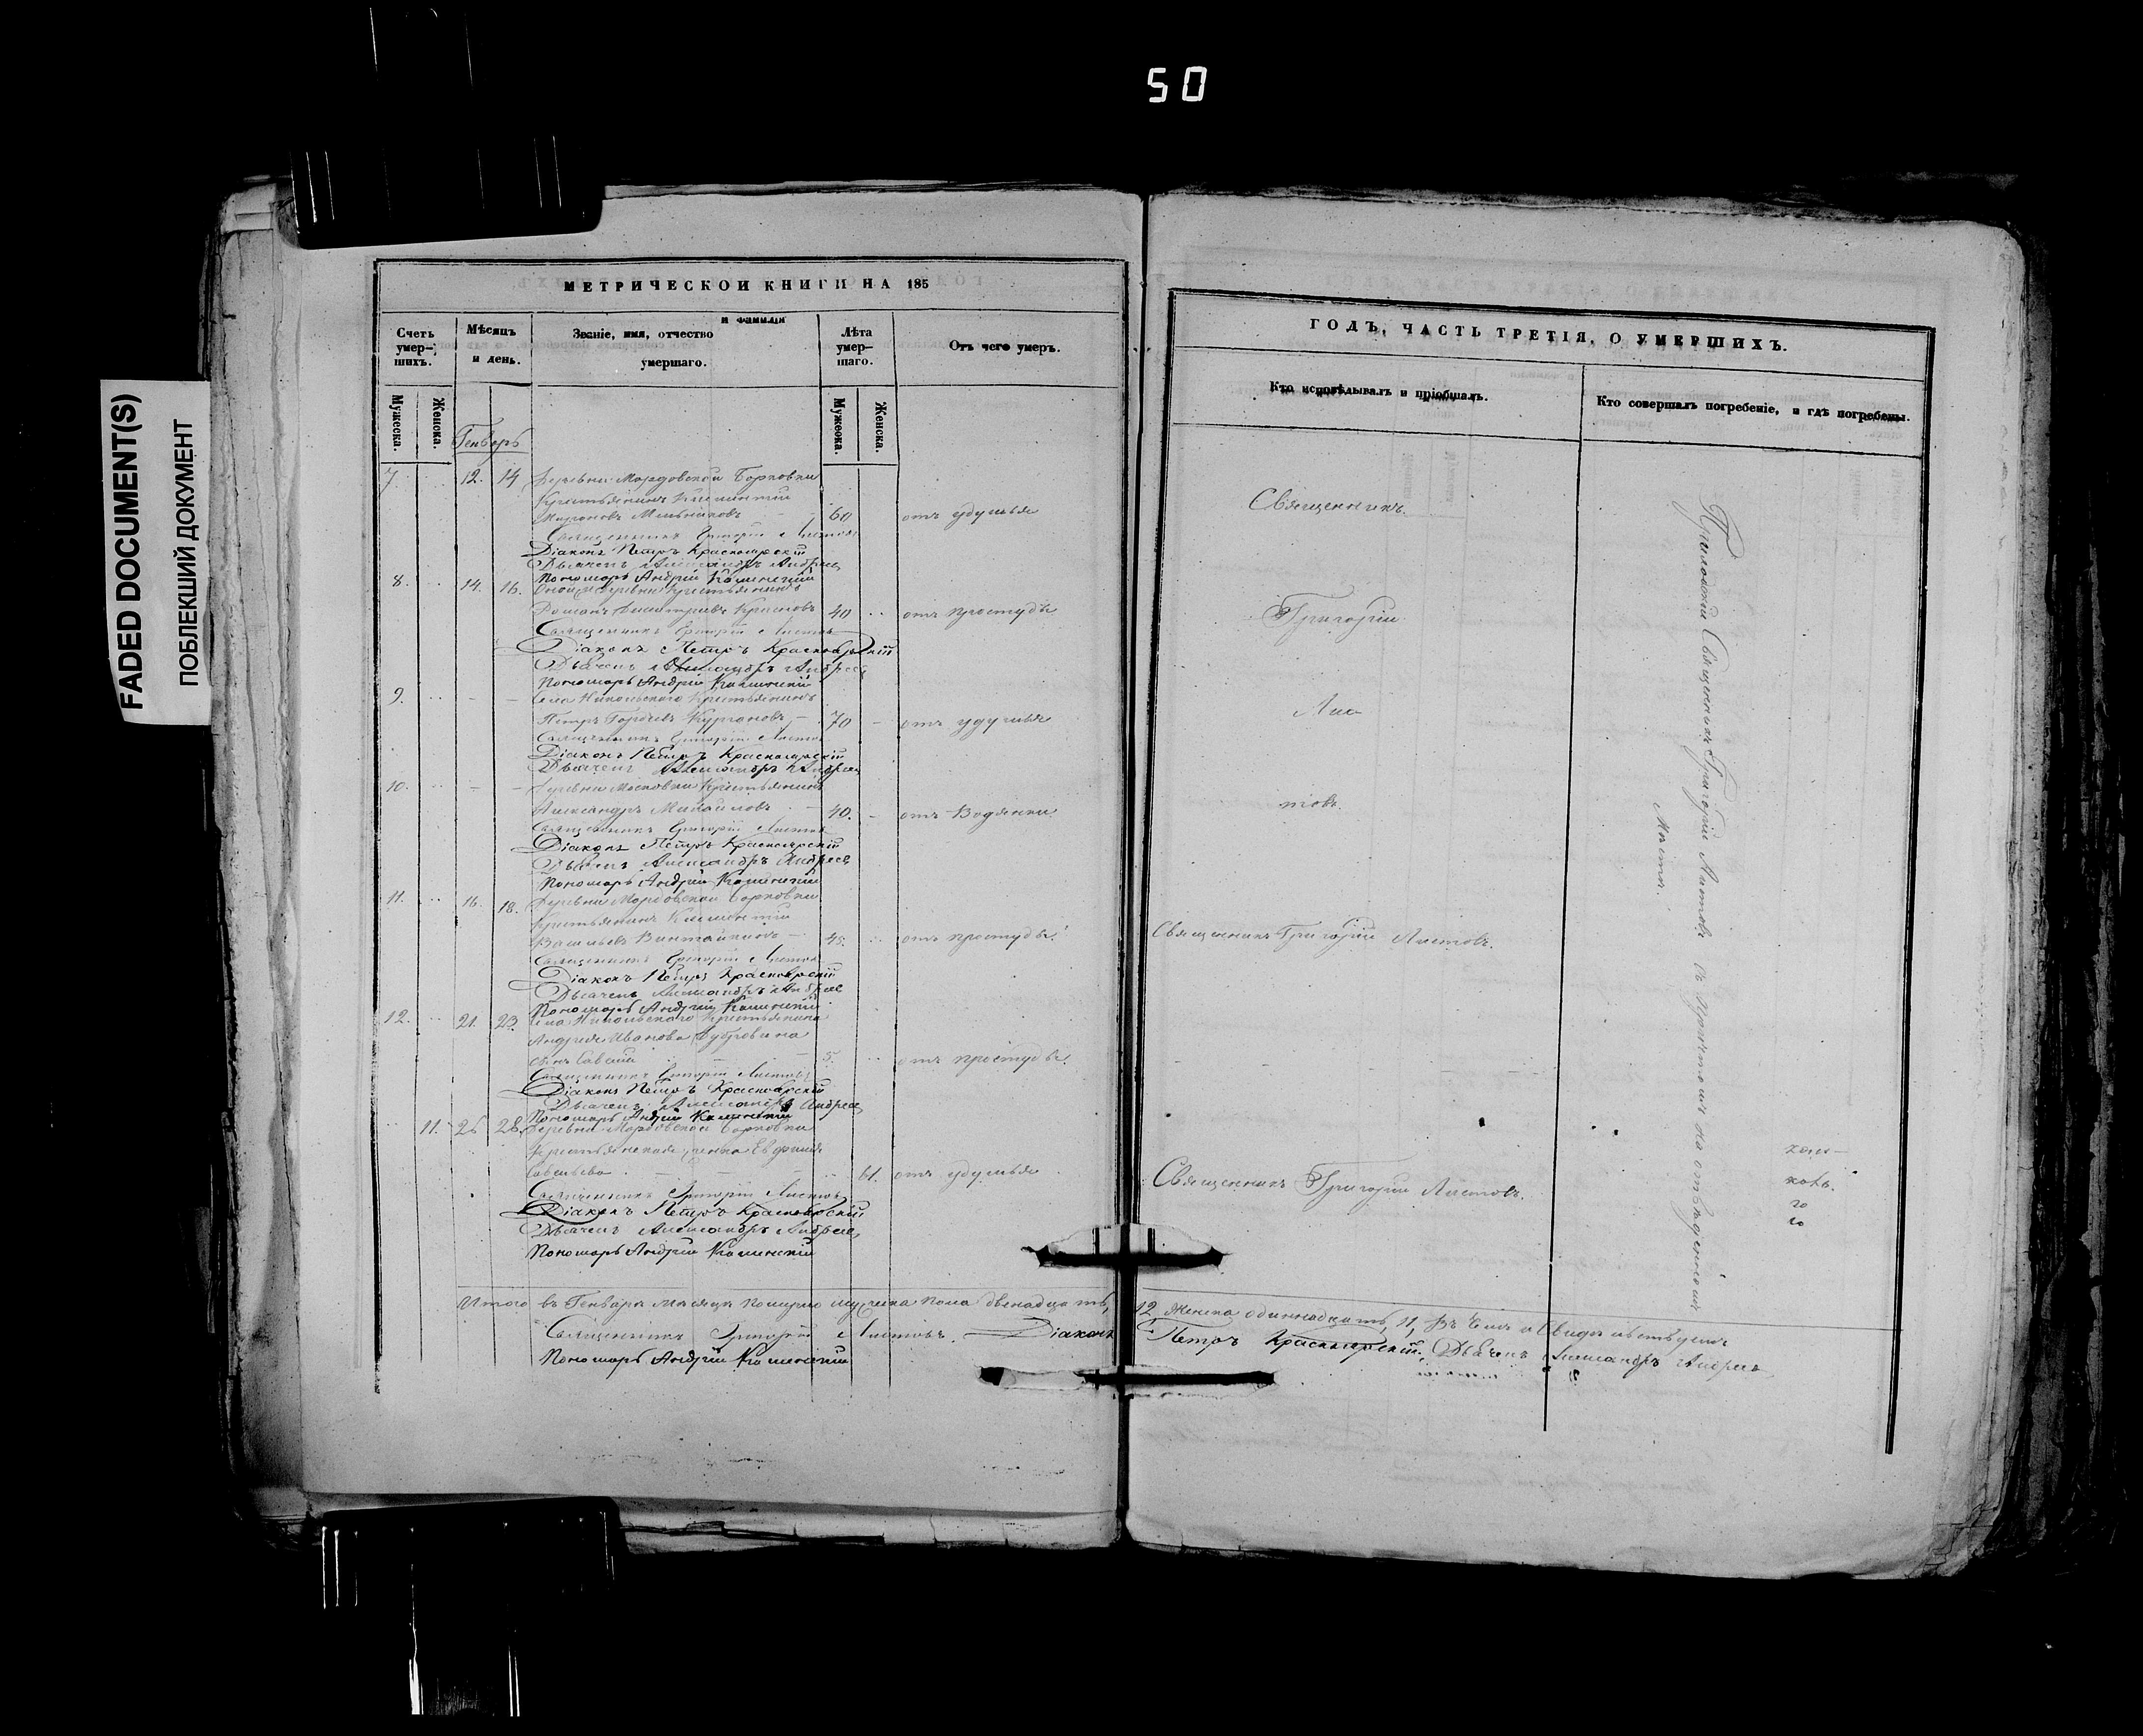 50
FADED DOCUMENT(S)
ПОБЛЕКШИЙ ДОКУМЕНТ
МЕТРИЧЕСКОИ КНИГИ НА 185
Счетъ умер-шихъ.
Мѣсяцъ и день.
Званіе, имя, отчество и фамилія умершаго.
Лѣта умер-шаго.
Отъ чего умеръ.
Мужеска.
Женска.
Мужеска.
Женска.
Генварь
7 12. 14 Деревни Мордовской Борковки
Крестьянинъ
Мельниковъ 60 отъ удушья
Священникъ Григорій Листовъ
Діаконъ Петръ Красноярскій
Дьячекъ Александръ Андреев
Пономарь Андрей Каменскій
8. 14. 16. Оной деревни крестьянинъ
Романъ Димитріевъ 40 отъ простуды
Священникъ Григорій Листовъ
Діаконъ Петръ Красноярскій
Дьячекъ Александръ Андреев
Пономарь Андрей Каменскій
9. Села Никольскаго Крестьянинъ
Петръ Кургановъ 70 отъ удушья
Священникъ Григорій Листовъ
Діаконъ Петръ Красноярскій
Дьячекъ Александръ Андреев
10. Деревни Московки Крестьянинъ
Александръ Михайловъ 40. отъ Водянки
Священникъ Григорій Листовъ
Діаконъ Петръ Красноярскій
Дьячекъ Александръ Андреев
Пономарь Андрей Каменскій
11. 16. 18. Деревни Мордовской Борковки
Крестьянинъ
Васильевъ 45. отъ простуды.
Священникъ Григорій Листовъ
Діаконъ Петръ Красноярскій
Дьячекъ Александръ Андрее
Пономарь Андрей Каменскій
12. 21. 23. Села Никольскаго Крестьянина
Андрея Иванова Дубровина
сынъ 5. отъ простуды.
Священникъ Григорій Листовъ
Діаконъ Петръ Красноярскій
Дьячекъ Александръ Андреев
Пономарь Андрей Каменскій
11. 26 28. Деревни Мордовской Борковки
Крестьянская женка
61. отъ удушья
Священникъ Григорій Листовъ
Діаконъ Петръ Красноярскій
Дьячекъ Александръ Андреев
Пономарь Андрей Каменскій
Итого въ Генварѣ месяцѣ померло мужеска пола двенадцать,
Священникъ Григорій Листовъ. Діаконъ
Пономарь Андрей Каменскій
ГОДЪ, ЧАСТЬ ТРЕТІЯ, О УМЕРШИХЪ.
Кто исповѣдывалъ и пріобщалъ.
Кто совершалъ погребеніе, и гдѣ погребены.
Священникъ
Григорій
Лис
товъ.
Священникъ Григорій Листовъ.
Священникъ Григорій Листовъ.
Приходскій Священникъ Григорій Листовъ съ причтомъ на отведенномъ
месте.
12 Женска одиннадцать, 11, Въ чемъ и Свидетельствуемъ
Петръ Красноярскій. Дьячекъ Александръ Андреев